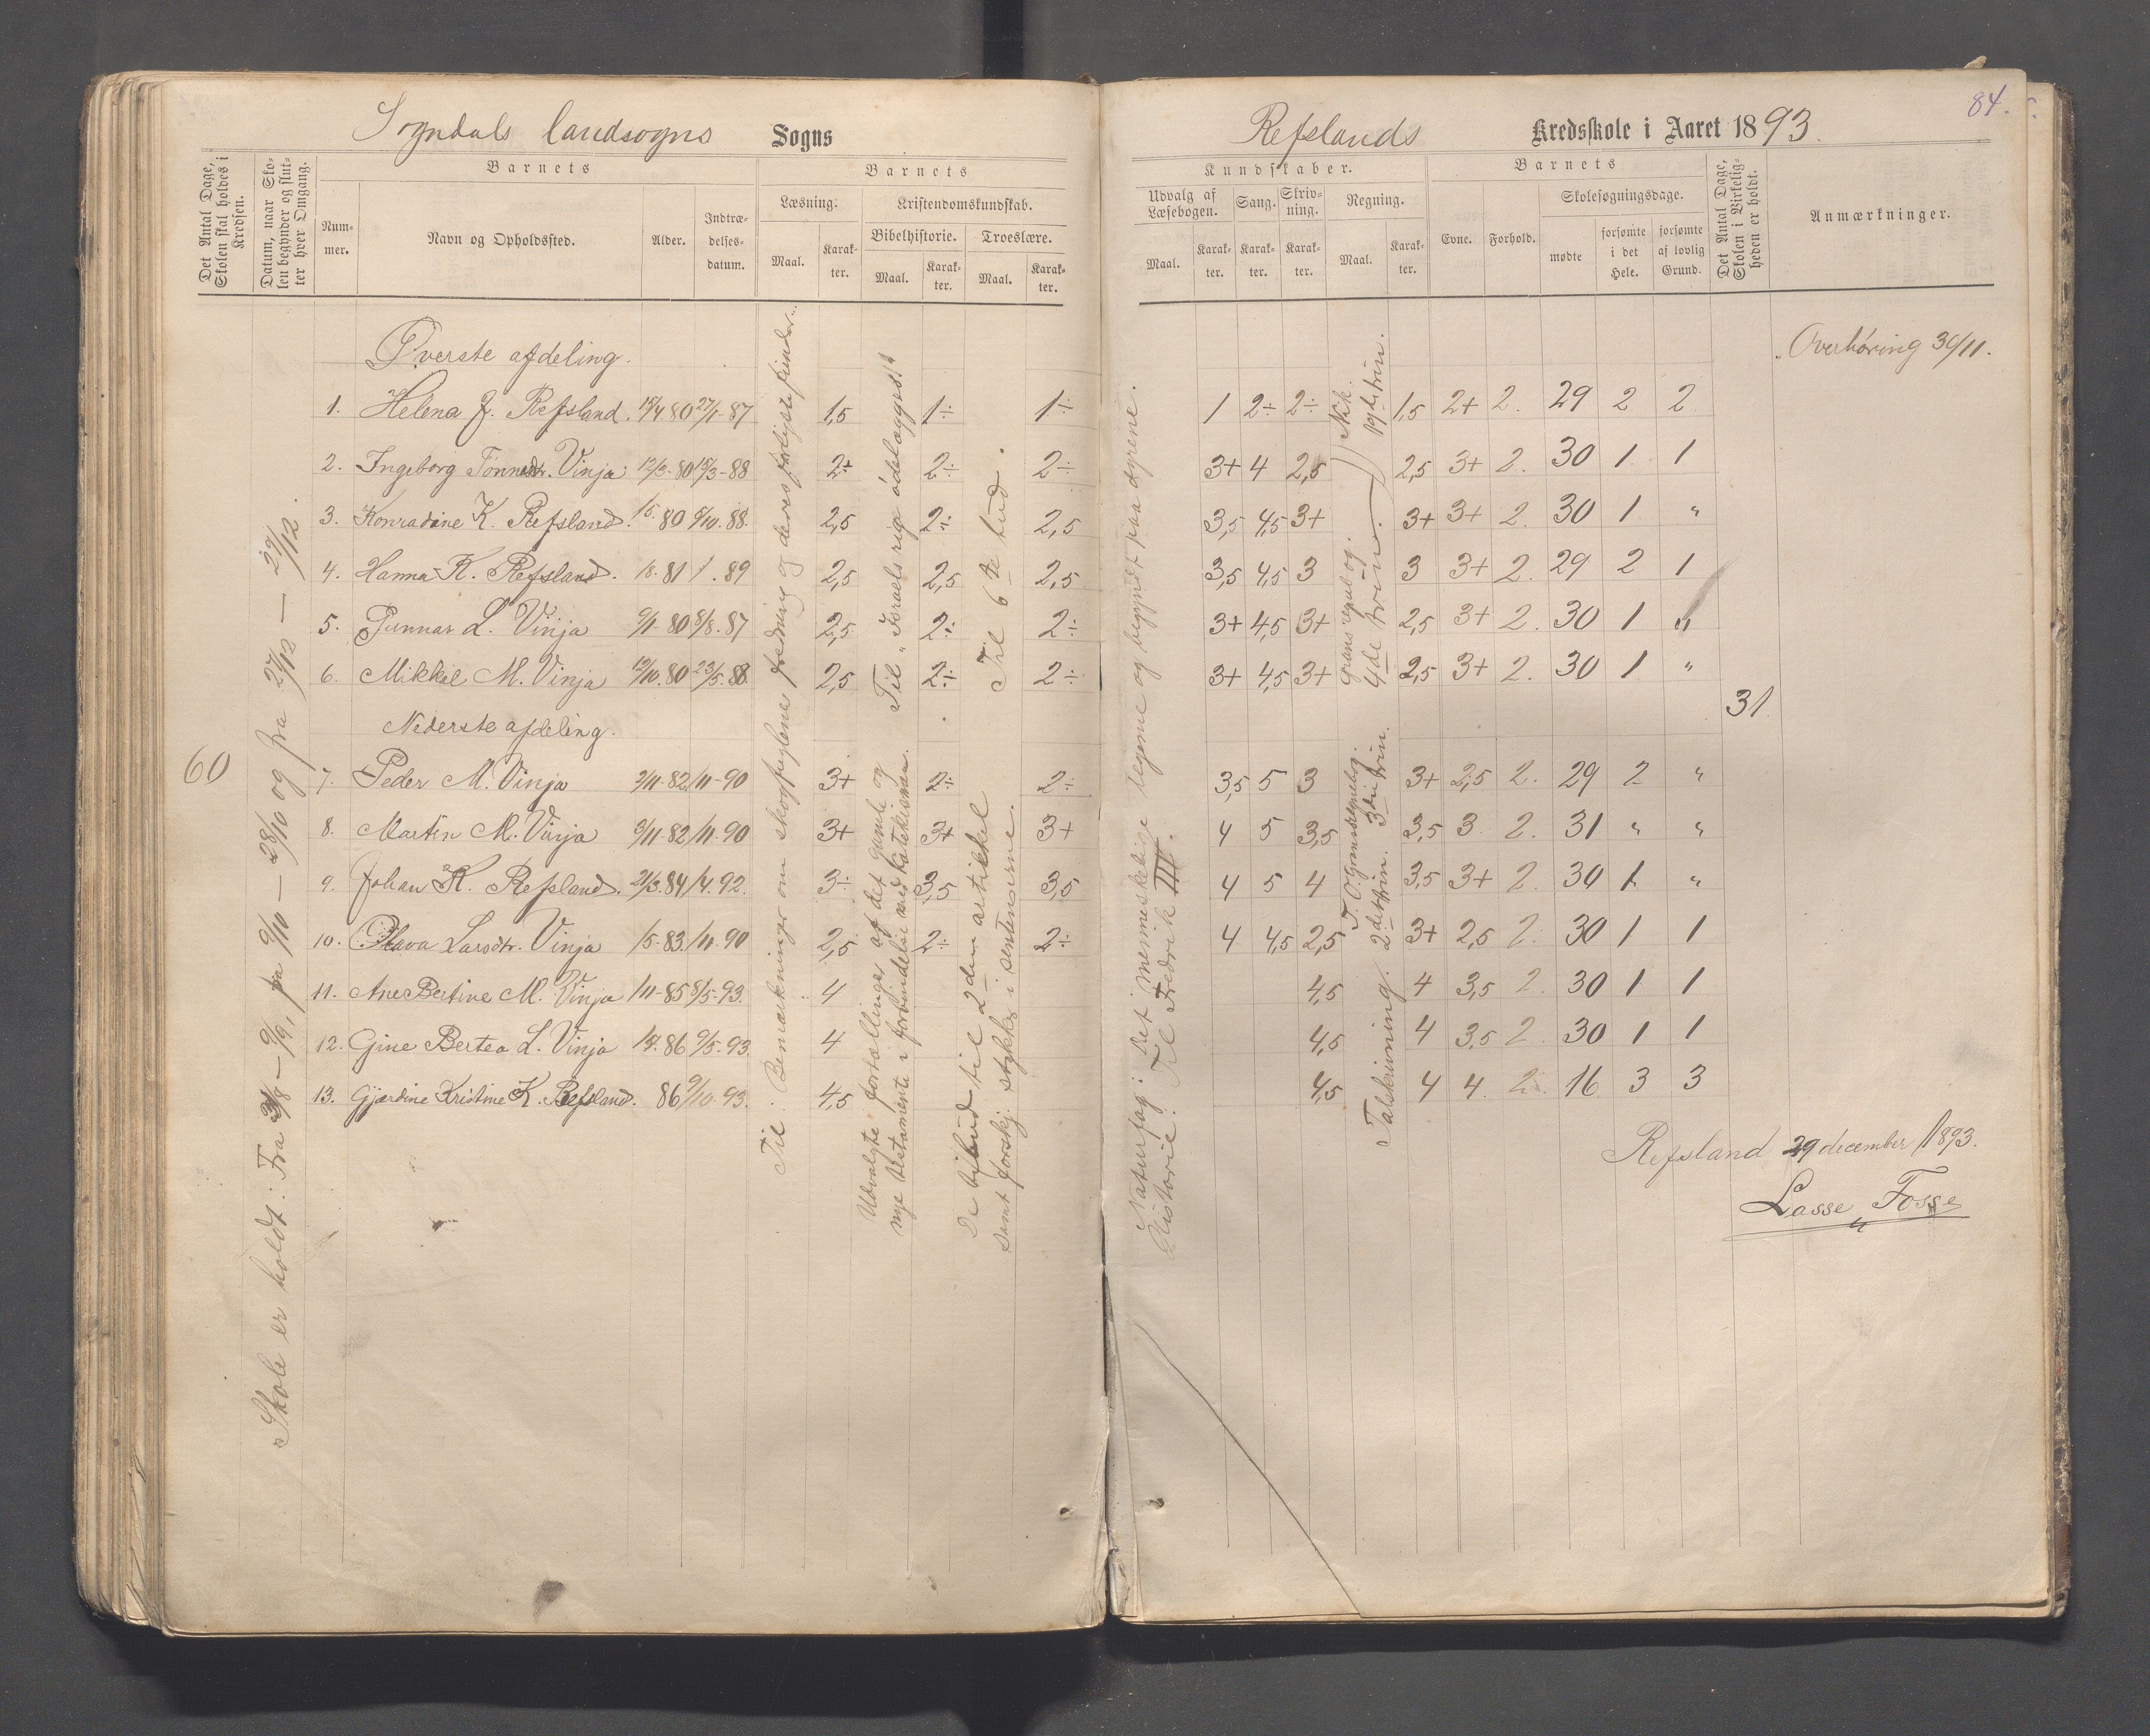 Sogndals landsogns Sogns
Det Antal Dage, Skolen skal holdes i Kredsen.
Datum, naar Skolen begynder og slutter hver Omgang.
Barnets
Nummer.
Navn og Opholdssted.
Alder.
Indtrædelsesdatum.
Barnets
Læsning.
Maal.
Karakter.
Kristendomskundskab.
Bibelhistorie.
Maal.
Karakter.
Troeslære.
Maal.
Karakter.
60
Skole er holdt: Fra 3/8 — 9/9, fra 9/10 — 28/10 og fra 27/12 — 29/12.
Øverste afdeling.
1. Helena J. Refsland. 15/4 80 27/1-87 1,5 1÷ 1÷
2. Ingeborg Tönnesdtr. Vinja 12/3-80 15/3-88 2÷ 2÷ 2÷
3. Konradine K. Refsland. 15. 80 9/10. 88. 2,5 2÷ 2,5
4. Hanna K. Refsland. 18. 81 / . 89 2,5 2,5 2,5
5. Gunnar L. Vinja 9/1-80 8/8. 87 2,5 2÷ 2÷
6. Mikkal M. Vinja 12/10. 80 23/5. 88. 2,5 2÷ 2÷
Nederste afdeling.
7. Peder M. Vinja 2/11-82 /11-90 3+ 2÷ 2÷
8. Martin M. Vinja 3/11-82 /11. 90 3+ 3+ 3+
9. Johan K. Refsland. 2/3. 84 /4. 92. 3÷ 3,5 3,5
10. Olava Larsdtr. Vinja /5-83 /11. 90 2,5 2÷ 2÷
11. Ane Bertine M. Vinja /11-85 8/5-93. 4
12. Gine Bertea L. Vinja 14. 86 9/5-93. 4
13. Gjærdine Kristine K. Refsland. 86 9/10-93. 4,5
Til Bemærkninger om skogfuglene fredning og deres farligste fiender.
Til "Israels rige ødelægges!"
Udvalgte fortællinger af det gamle og
nye testamente i forbindelse med katekismen.
Til 6te bud.
De ti bud til 2den artikkel
samt forskj. stykker i sentenserne.
84.
Refslands Kredsskole i Aaret 1893.
Kundskaber.
Udvalg af Læsebogen.
Maal.
Karakter.
Sang.
Karakter.
Skrivning.
Karakter.
Regning.
Maal.
Karakter.
Barnets
Evne.
Forhold.
Skolesøgningsdage.
mødte
forsømte i det Hele.
forsømte af lovlig Grund.
Det Antal Dage, Skolen i Virkeligheden er holdt.
Anmærkninger.
Overhøring 30/11.
1 2÷ 2÷ 1,5 2+ 2. 29 2 2
3+ 4 2,5 2,5 3+ 2. 30 1 1
3,5 4,5 3+ 3+ 3+ 2. 30 1 "
3,5 4,5 3 3 3+ 2. 29 2 1
3+ 4,5 3+ 2,5 3+ 2. 30 1 "
3+ 4,5 3+ 2,5 3+ 2. 30 1 "
31
3,5 5 3 3+ 2,5 2. 29 2 "
4 5 3,5 3,5 3 2. 31 " "
4 5 4 3,5 3+ 2. 30 1 "
4 4,5 2,5 3+ 2,5 2. 30 1 1
4,5 4 3,5 2. 30 1 1
4,5 4 3,5 2 30 1 1
4,5 4 4. 2. 16 3 3
Naturfag: Det menneskelige legeme og begyndt paa dyrene.
Historie: Til Fredrik III.
4de trin.
J. O. Grans regnebog. 3die trin.
Talskrivning. 2det trin.
Refsland 29 december 1893.
Lasse Fosse